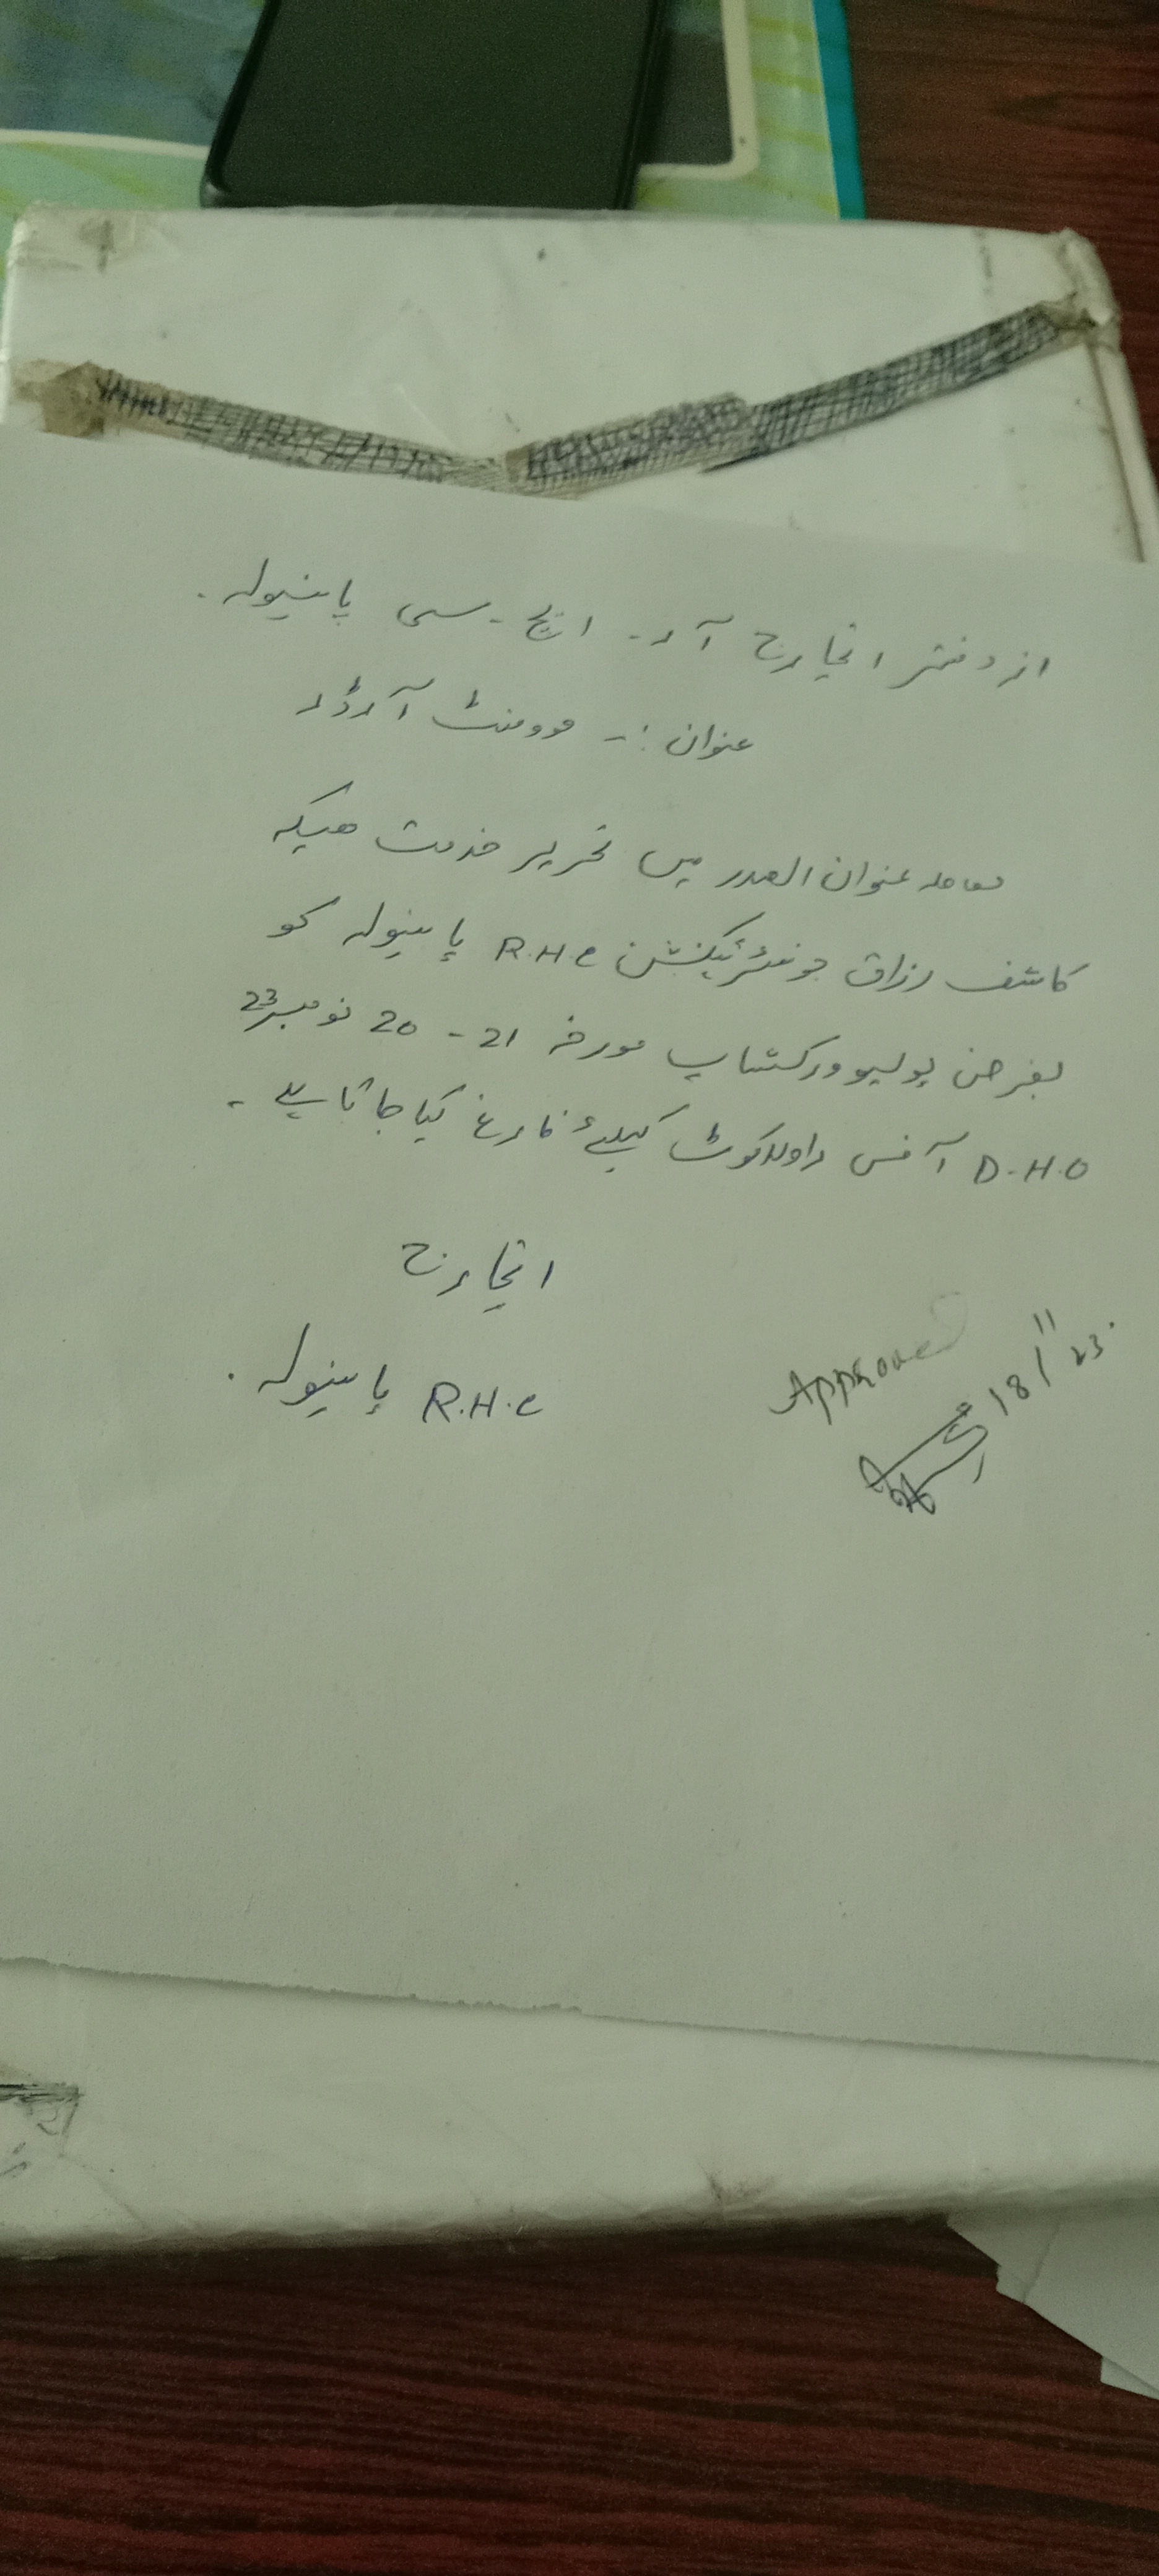 از دفتر انچارج آر۔ ایچ۔ سی پاینولہ۔
عنوان :۔ موومنٹ آرڈر
معاملہ عنوان الصدر میں تحریر خدمت ھیکہ
کاشف رزاق جونئیرٹیکنشن R.H.C پاینولہ کو
بغرض پولیو ورکشاپ مورخہ 21 - 20 نومبر 23
D.H.O آفس راولاکوٹ کیلئے فارغ کیا جاتا ہے ۔
انچارج
R.H.C پاینولہ۔
Approved
18/11/23.